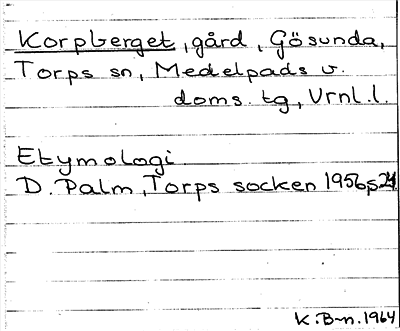 Korpberget, gård, Gösunda,
Torps sn, Medelpads v.
doms. tg, Vrnl. l.
Etymologi.
D. Palm, Torps socken 1956, s 24.
K. B-n. 1964